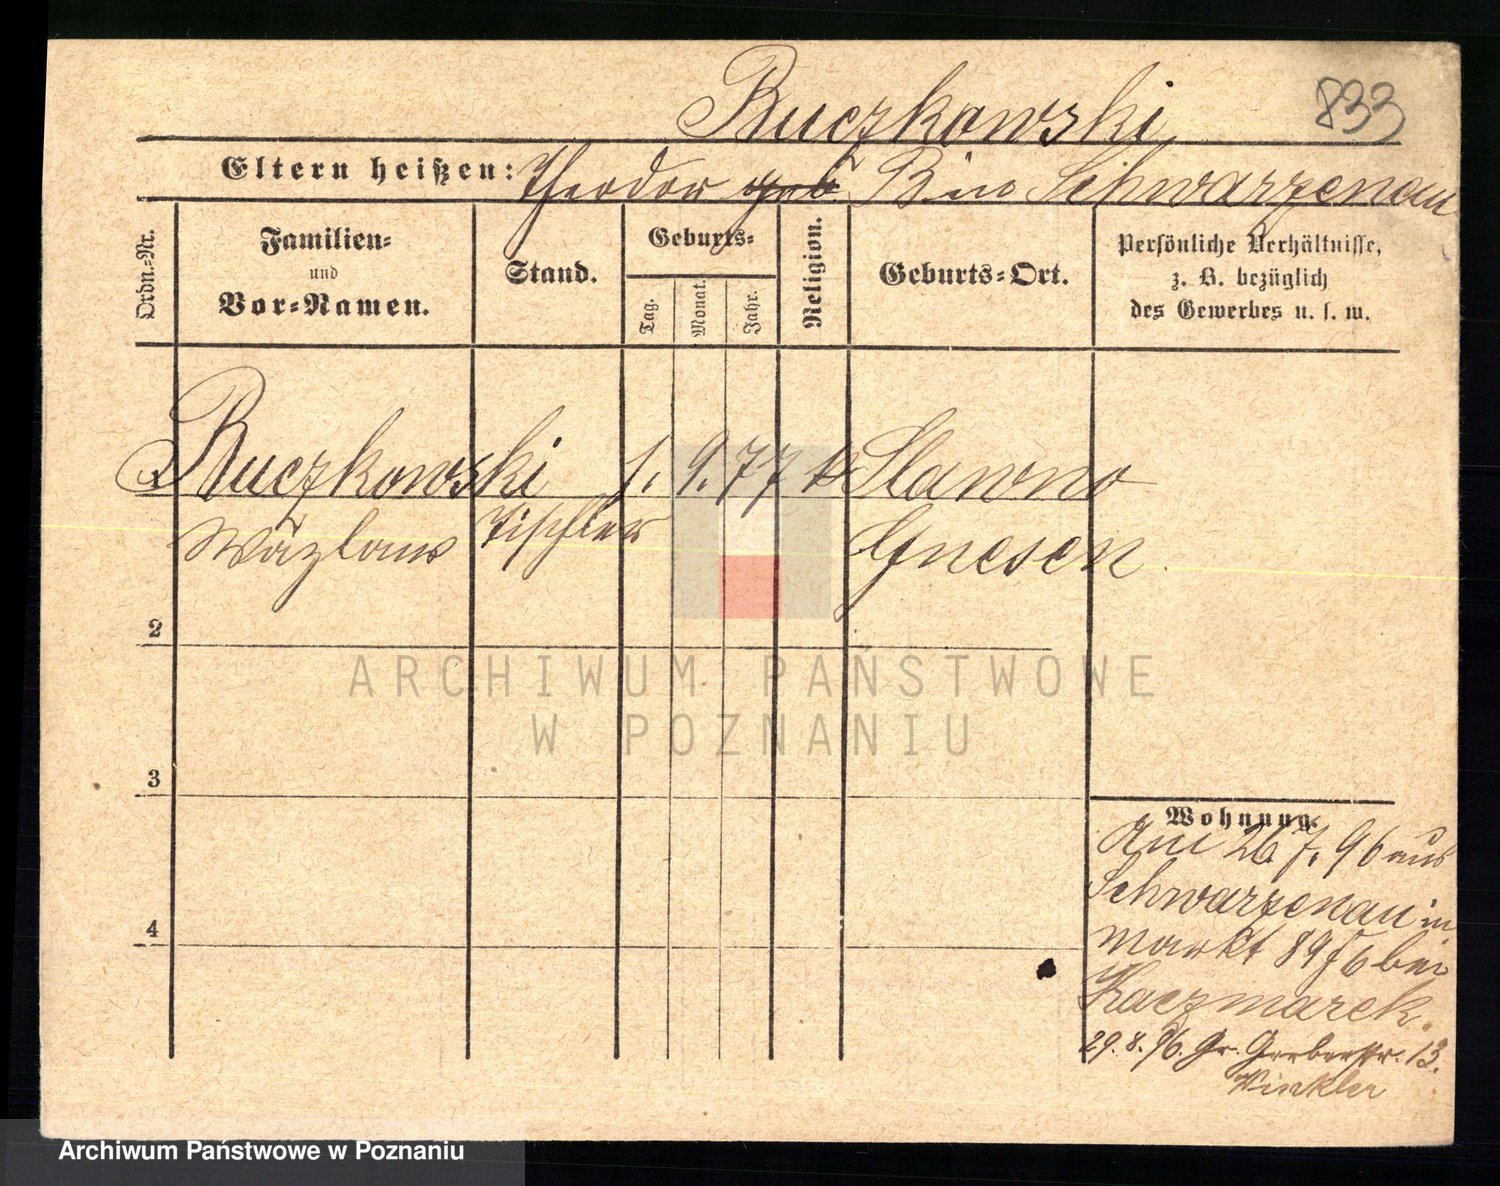 Ruczkowski
833
Eltern heißen: Theodor geb. B. in Schwarzenau
Ordn.-Nr.
Familien- und Vor-Namen.
Stand.
Geburts-
Tag.
Monat.
Jahr.
Religion.
Geburts-Ort.
Persönliche Verhältnisse,
z. B. bezüglich
des Gewerbes u. s. w.
Ruczkowski 1. 9. 77 k Slawno
Wäzlaus Tischler Gnesen
2
3
4
Wohnung.
Am 26.7.96 aus
Schwarzenau in
Markt 89 bei
Kaczmarek.
29.8.96. Gr. Gerberstr. 13.
Winkler
ARCHIWUM PAŃSTWOWE
W POZNANIU
Archiwum Państwowe w Poznaniu